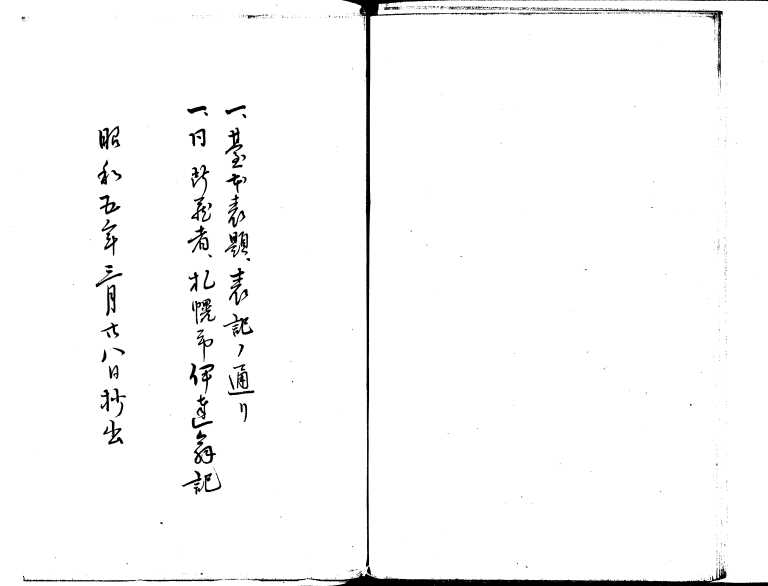 一、臺本表題、表記ノ通リ
一、同所蔵者、札幌市伊達翁記
昭和五年三月廿八日抄出